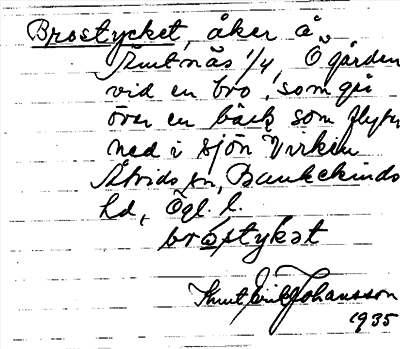 Brostycket, åker å
Knutnäs 1/4, Ögården
vid en bro, som går
över en bäck som flyter
ned i sjön Virken
Åtvids sn, Bankekinds
hd, Ögl. l.
brostykət
Knut Erik Johansson
1935